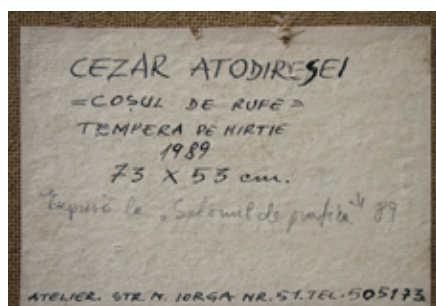 CEZAR ATODIREȘEI
=COȘUL DE RUFE=
TEMPERA PE HIRTIE
1989
73 X 53 cm.
Expusă la „Salonul de grafică" 89
ATELIER. STR N. IORGA NR. 51. TEL. 505173